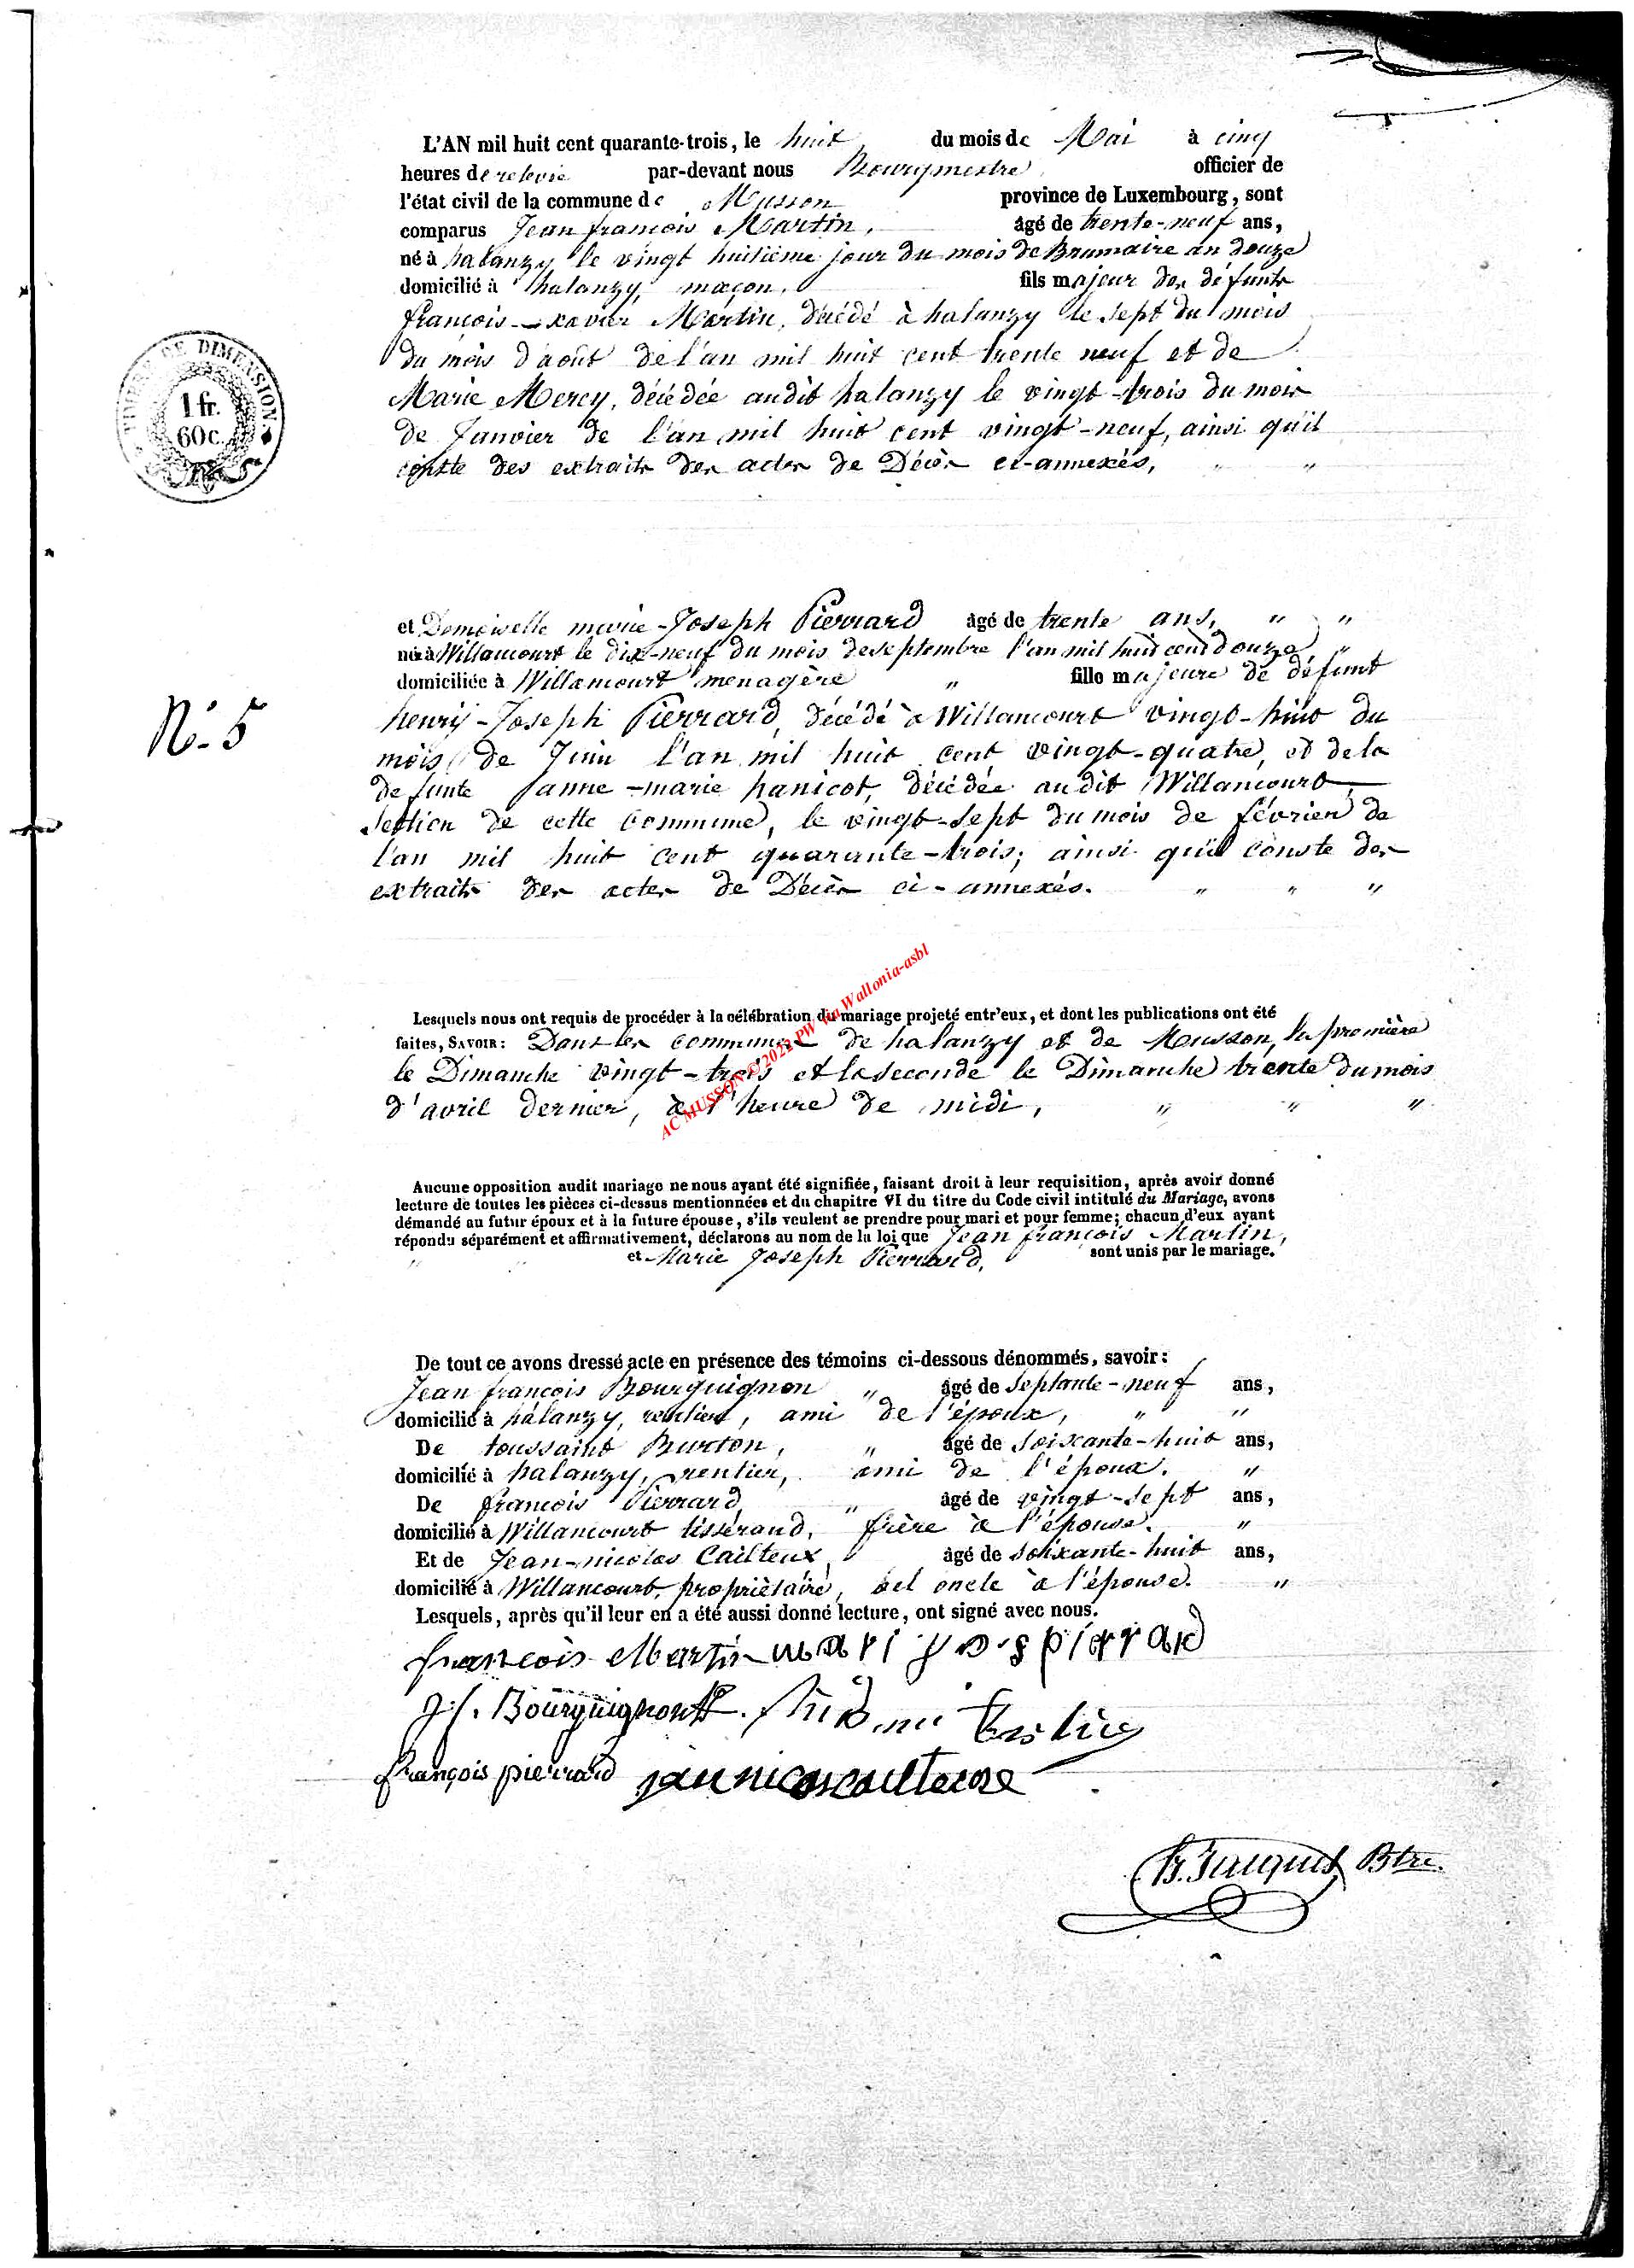 L'AN mil huit cent quarante-trois, le huit du mois de Mai à cinq
heures de relevée par-devant nous Bourgmestre officier de
l'état civil de la commune de Musson province de Luxembourg, sont
comparus Jean françois Martin, âgé de trente-neuf ans,
né à halanzy le vingt huitième jour du mois de Brumaire an douze
domicilié à halanzy, maçon, fils majeur des défunts
françois-xavier Martin, décédé à halanzy le sept du mois
du mois d'août de l'an mil huit cent trente neuf et de
Marie Mercy, décédée audit halanzy le vingt-trois du mois
de Janvier de l'an mil huit cent vingt-neuf, ainsi qu'il
conste des extraits des actes de Décès ci-annexés, " "
TIMBRE DE DIMENSION
1 fr.
60 c.
et Demoiselle marie-Joseph Pierrard âgé de trente ans, " "
née à Willancourt le dix-neuf du mois de septembre l'an mil huit cent douze "
domiciliée à Willancourt menagère " fille majeure de défunt
N.° 5
henrij-Joseph Pierrard, décédé à Willancourt vingt-huit du
mois de Juin l'an mil huit cent vingt-quatre, et de la
defunte anne-marie hanicot, décédée audit Willancourt,
section de cette commune, le vingt-sept du mois de février de
l'an mil huit cent quarante-trois; ainsi qu'il conste des
extraits des actes de Décès ci-annexés. " " "
AC MUSSON © 2022 PW via Wallonia-asbl
Lesquels nous ont requis de procéder à la célébration du mariage projeté entr'eux, et dont les publications ont été
faites, SAVOIR: Dans les communes de halanzy et de Musson, la première
le Dimanche vingt-trois et la seconde le Dimanche trente du mois
d'avril dernier, à l'heure de midi, " " "
Aucune opposition audit mariage ne nous ayant été signifiée, faisant droit à leur requisition, après avoir donné
lecture de toutes les pièces ci-dessus mentionnées et du chapitre VI du titre du Code civil intitulé du Mariage, avons
démandé au futur époux et à la future épouse, s'ils veulent se prendre pour mari et pour femme; chacun d'eux ayant
répondu séparément et affirmativement, déclarons au nom de la loi que Jean françois Martin,
" " et Marie Joseph Pierrard, sont unis par le mariage.
De tout ce avons dressé acte en présence des témoins ci-dessous dénommés, savoir:
Jean françois Bourguignon " âgé de Septante-neuf ans,
domicilié à halanzy, rentier, ami de l'époux, " "
De toussaint Burton, " âgé de Soixante-huit ans,
domicilié à halanzy, rentier, ami de l'époux. "
De françois Pierrard, " âgé de vingt-sept ans,
domicilié à Willancourt tisserand, frère à l'épouse. "
Et de Jean-nicolas Cailteux, âgé de Soixante-huit ans,
domicilié à Willancourt, propriétaire, bel oncle à l'épouse. "
Lesquels, après qu'il leur en a été aussi donné lecture, ont signé avec nous.
françois Martin mari jos pierrard
J f. Bourguignont
françois pierrard
Jacquet Btre.